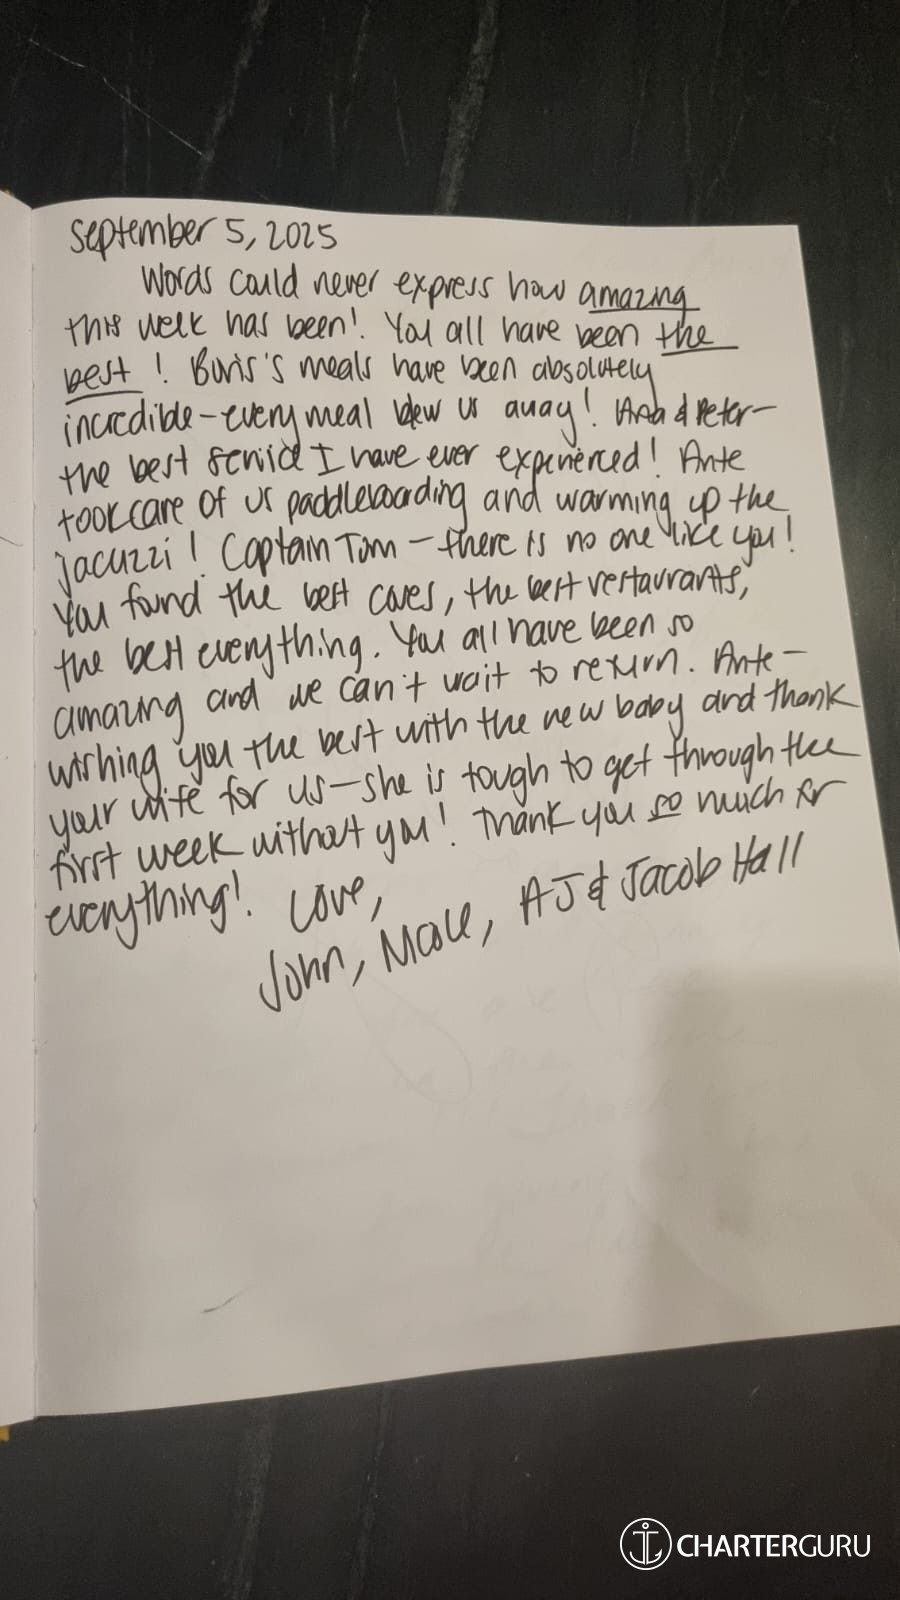 September 5, 2025
Words could never express how amazing
this week has been! You all have been the
best! Buris's meals have been absolutely
incredible - every meal blew us away! Ana & Peter -
the best service I have ever experienced! Ante
took care of us paddleboarding and warming up the
jacuzzi! Captain Tom - there is no one like you!
You found the best caves, the best restaurants,
the best everything. You all have been so
amazing and we can't wait to return. Ante -
wishing you the best with the new baby and thank
your wife for us - she is tough to get through the
first week without you! Thank you so much for
everything! Love,
John, Nicole, AJ & Jacob Hall
CHARTERGURU